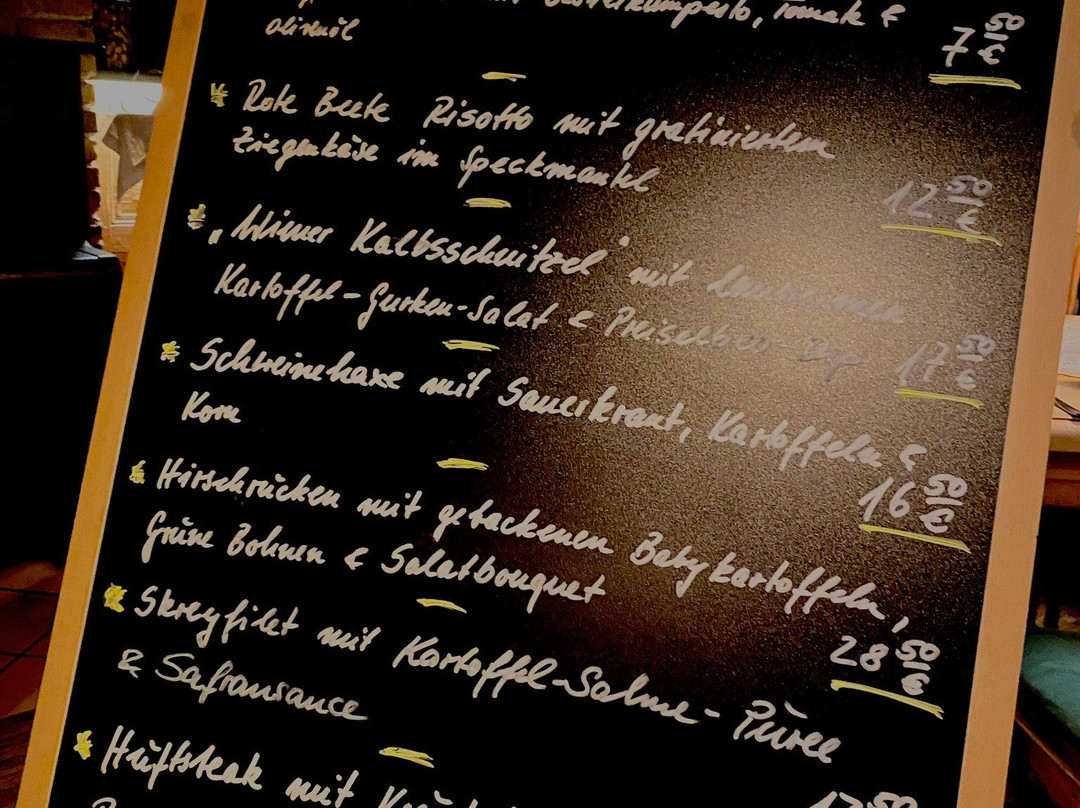 Tomate &
olivenöl
7 50 €
Rote Beete Risotto mit gratiniertem
Ziegenkäse im Speckmantel
12 50 €
„Wiener Kalbsschnitzel" mit
Kartoffel-Gurken-Salat &
17 50 €
Schweinehaxe mit Sauerkraut, Kartoffeln &
Korn
16 50 €
Hirschrücken mit gebackenen Babykartoffeln,
Grüne Bohnen & Salatbouquet
28 50 €
Skreyfilet mit Kartoffel-Sahne-Püree
& Safransauce
Hüftsteak mit